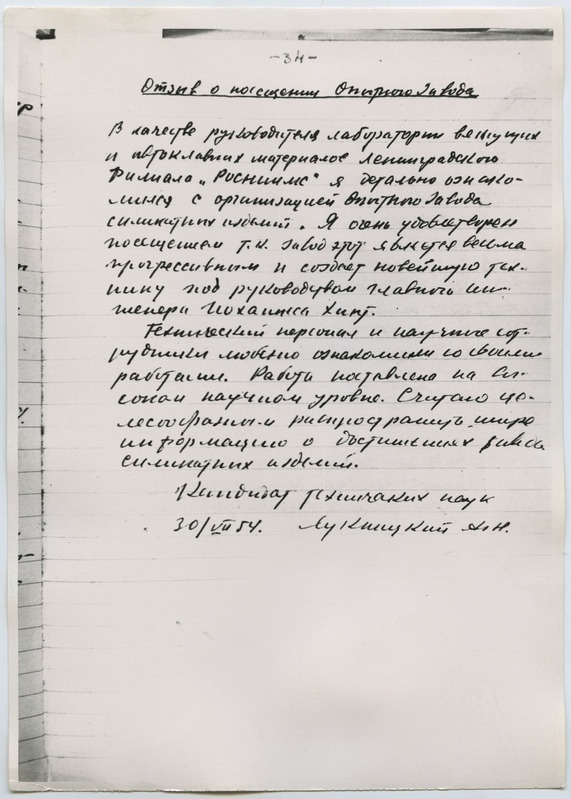 -34-
Отзыв о посещении Опытного Завода
В качестве руководителя лаборатории вяжущих
и автоклавных материалов Ленинградского
Филиала „Росниимс" я детально ознако-
мился с организацией Опытного Завода
силикатных изделий. Я очень удовлетворен
посещением т.к. завод этот является весьма
прогрессивным и создает новейшую тех-
нику под руководством главного ин-
женера Иоханнеса Хинт.
Технический персонал и научные сот-
рудники любезно ознакомили со своими
работами. Работа поставлена на вы-
соком научном уровне. Считаю це-
лесообразным распространить широ
информацию о достижениях завода
силикатных изделий.
Кандидат технических наук
30/VII 54.